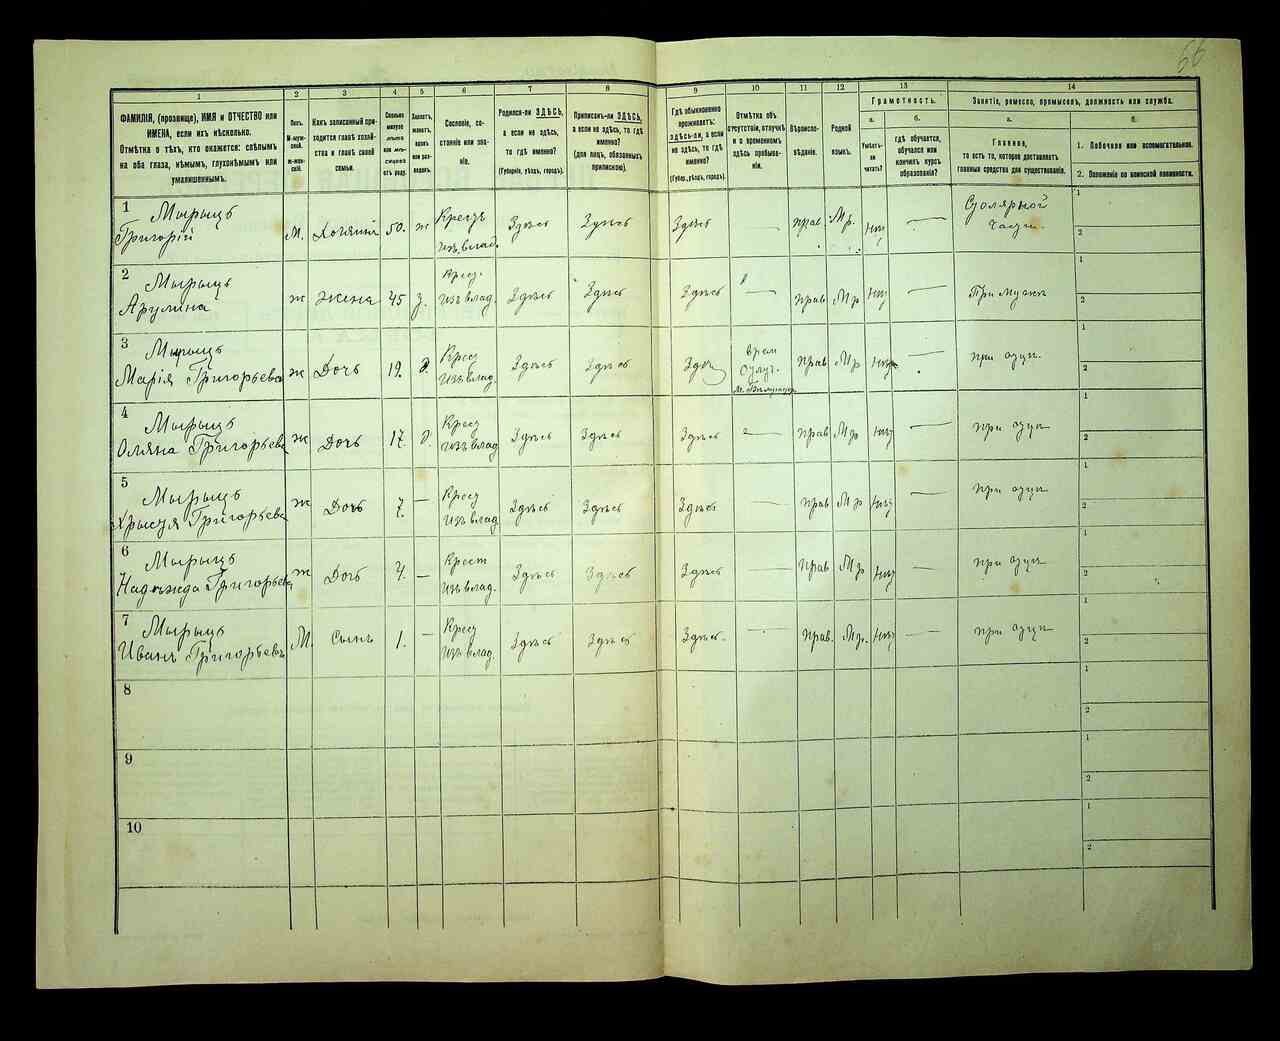 56
1
2
3
4
5
6
7
8
9
10
11
12
13
14
ФАМИЛІЯ, (прозвище), ИМЯ и ОТЧЕСТВО или
ИМЕНА, если ихъ нѣсколько.
Отмѣтка о тѣхъ, кто окажется: слѣпымъ
на оба глаза, нѣмымъ, глухонѣмымъ или
умалишеннымъ.
Полъ.
М-муж-
ской.
ж-жен-
скій.
Какъ записанный при-
ходится главѣ хозяй-
ства и главѣ своей
семьи.
Сколько
минуло
лѣтъ
или мѣ-
сяцевъ
отъ роду.
Холостъ,
женатъ,
вдовъ
или раз-
веденъ.
Сословіе, со-
стояніе или зва-
ніе.
Родился-ли ЗДѢСЬ,
а если не здѣсь,
то гдѣ именно?
(Губернія, уѣздъ, городъ).
Приписанъ-ли ЗДѢСЬ,
а если не здѣсь, то гдѣ
именно?
(для лицъ, обязанныхъ
припискою).
Гдѣ обыкновенно
проживаетъ:
ЗДѢСЬ-ли, а если
не здѣсь, то гдѣ
именно?
(Губер., уѣздъ, городъ).
Отмѣтка объ
отсутствіи, отлучкѣ
и о временномъ
здѣсь пребыва-
ніи.
Вѣроиспо-
вѣданіе.
Родной
языкъ.
Грамотность.
а.
Умѣетъ-
ли
читать?
б.
гдѣ обучается,
обучался или
кончилъ курсъ
образованія?
Занятіе, ремесло, промыселъ, должность или служба.
а.
Главное,
то есть то, которое доставляетъ
главныя средства для существованія.
б.
1. Побочное или вспомогательное.
2. Положеніе по воинской повинности.
1 Мырыцъ
Григорій М. Хозяинъ 50. ж Крест изъ влад. Здѣсь Здѣсь Здѣсь прав. Мр. нѣт — Столярной
1
2
2 Мырыцъ
ж жена 45 з. Крес. изъ влад. Здѣсь Здѣсь Здѣсь — прав Мр нѣт — При мужѣ
1
2
3 Мырыцъ
Марія Григорьева ж Дочь 19. д. Крест изъ влад. Здѣсь Здѣсь Здѣс прав Мр нѣт — при отцѣ
1
2
4 Мырыцъ
Оляна Григорьева ж Дочь 17 д. Крест изъ влад Здѣсь Здѣсь Здѣсь — прав Мр нѣт — при отцѣ
1
2
5 Мырыцъ
Григорьева ж Дочь 7. — Крест изъ влад Здѣсь Здѣсь Здѣсь — прав Мр нѣт — при отцѣ
1
2
6 Мырыцъ
Надѣжда Григорьева ж Дочь 4. — Крест изъ влад. Здѣсь Здѣсь Здѣсь — прав Мр. нѣт — при отцѣ
1
2
7 Мырыцъ
Иванъ Григорьевъ М. Сынъ 1. — Крест изъ влад. Здѣсь Здѣсь Здѣсь — прав. Мр. нѣт — при отцѣ
1
2
8
1
2
9
1
2
10
1
2